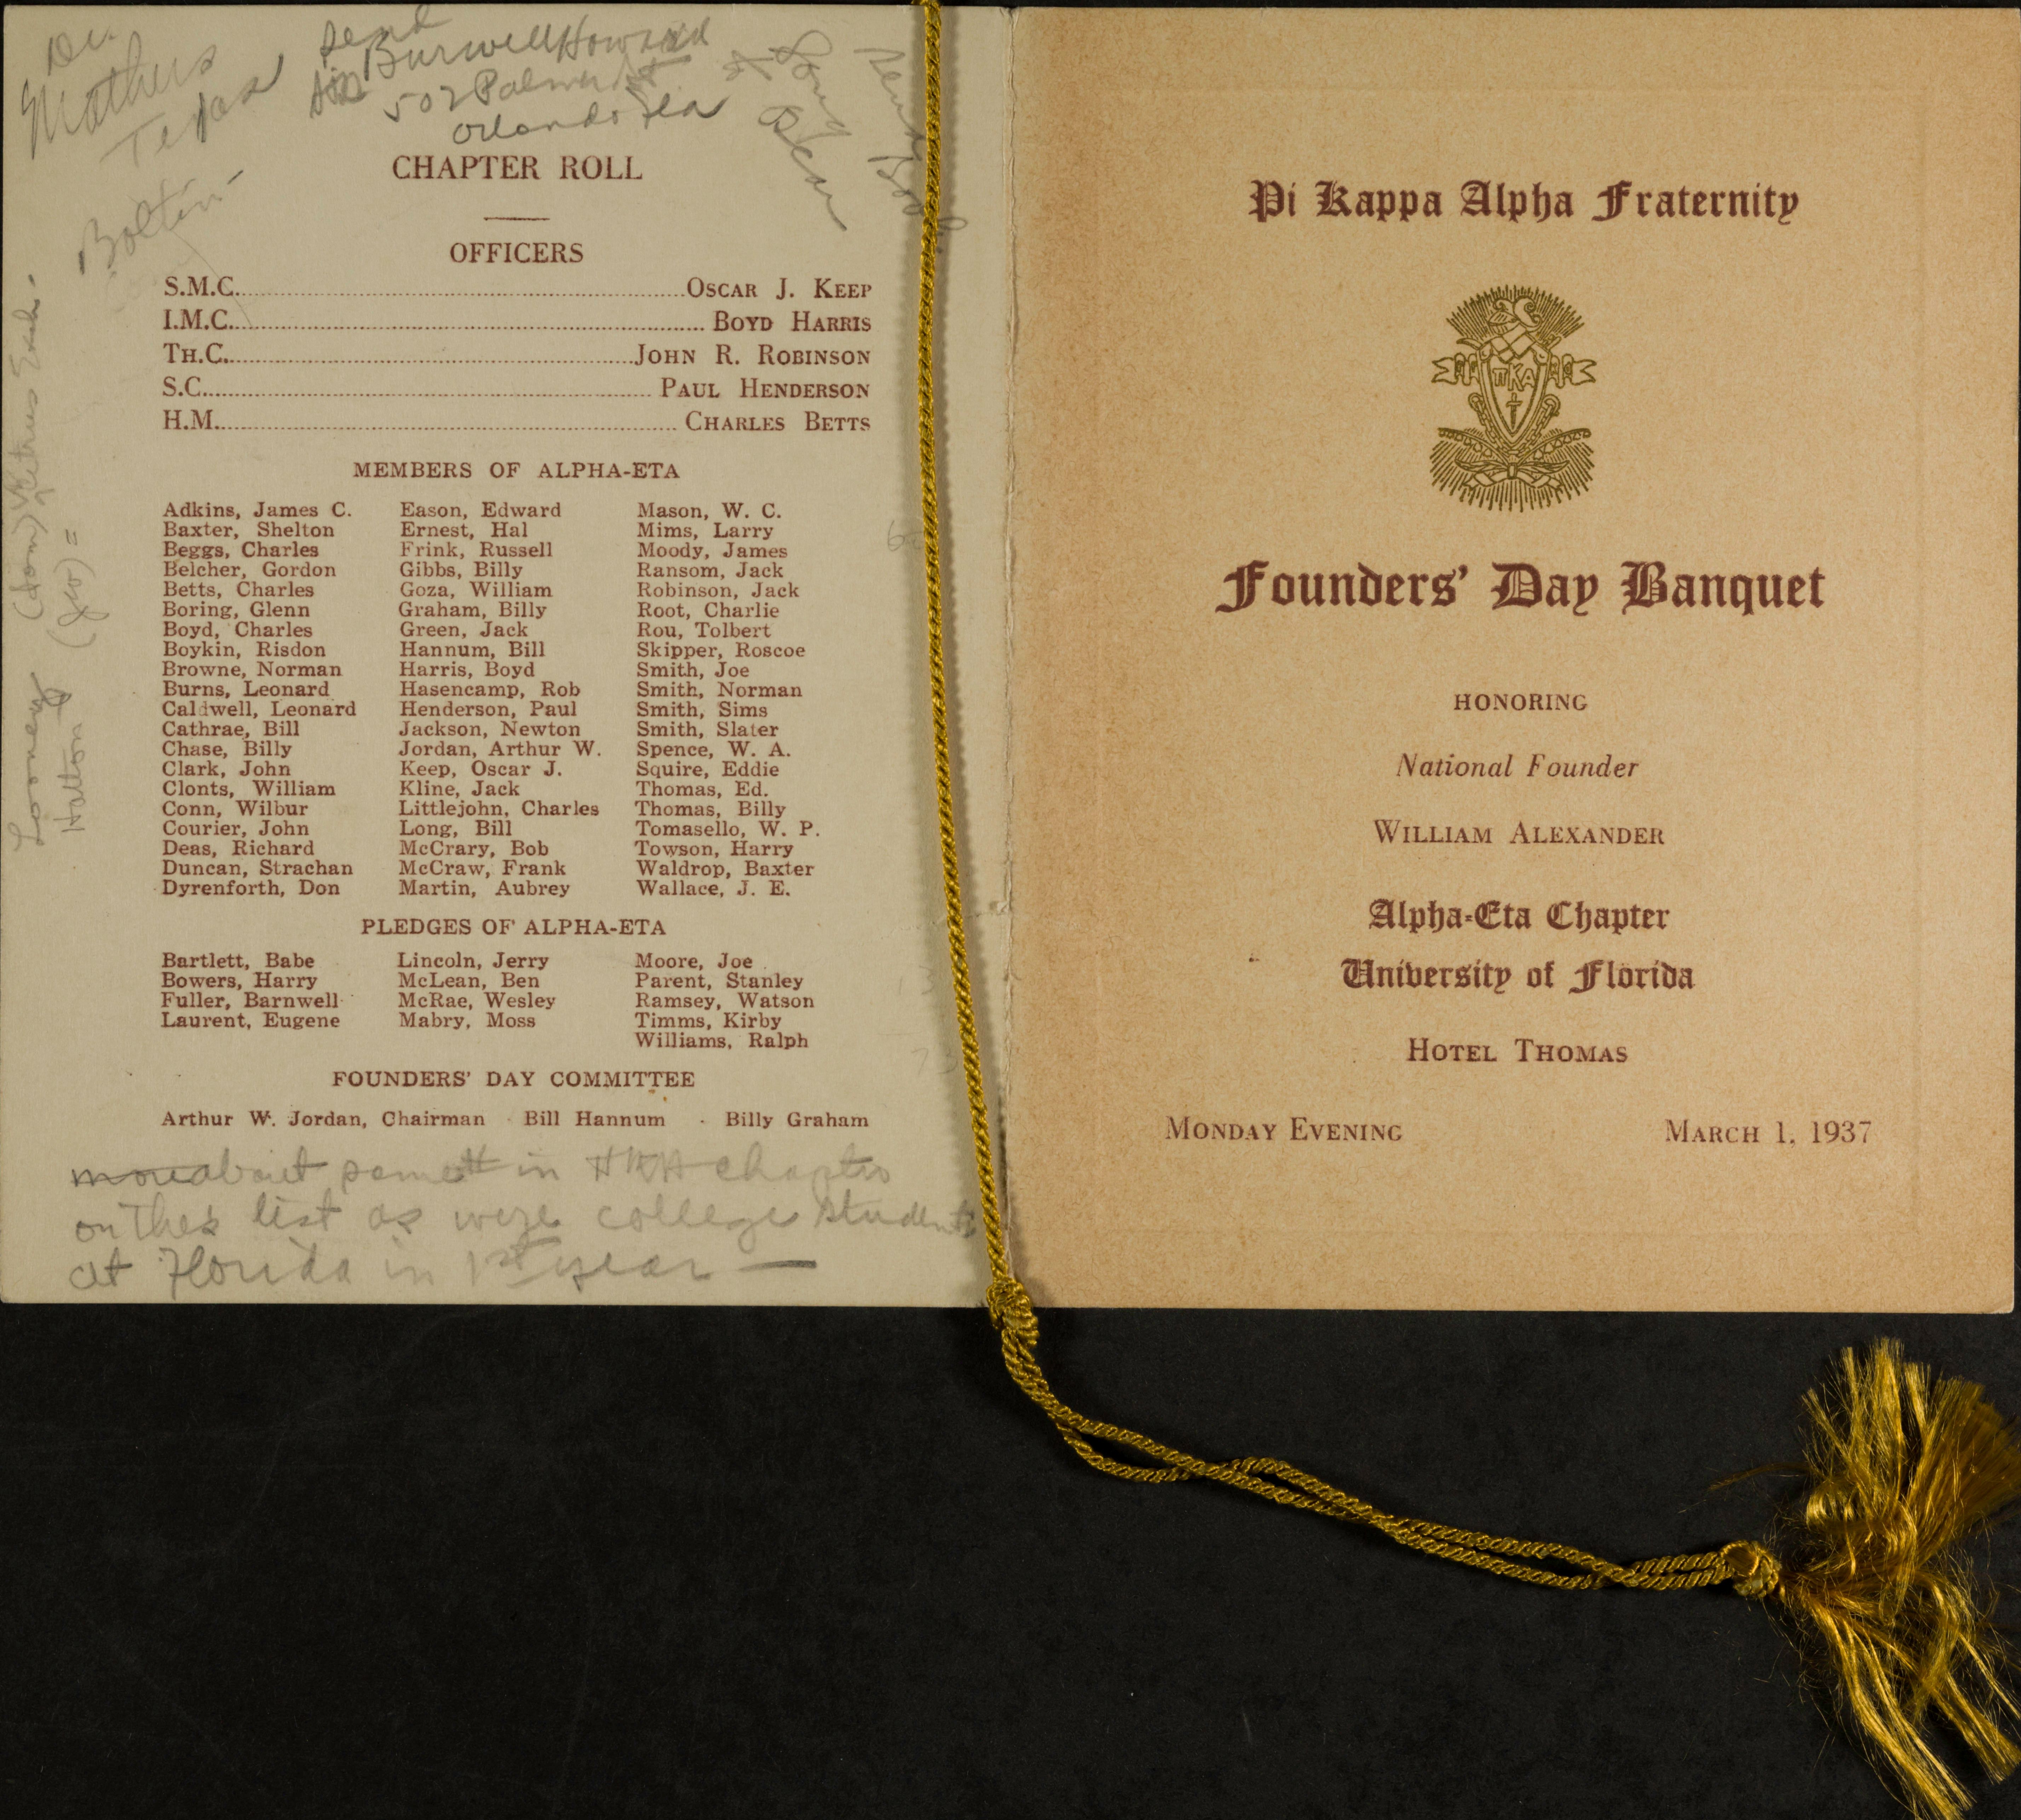 Dr.
Mathers
Texas
Bolton
send
Burwell Howard
502 Palmer St
Orlando Fla
Long
Bean
CHAPTER ROLL
OFFICERS
S.M.C. OSCAR J. KEEP
I.M.C. BOYD HARRIS
TH.C. JOHN R. ROBINSON
S.C. PAUL HENDERSON
H.M. CHARLES BETTS
MEMBERS OF ALPHA-ETA
Adkins, James C.
Baxter, Shelton
Beggs, Charles
Belcher, Gordon
Betts, Charles
Boring, Glenn
Boyd, Charles
Boykin, Risdon
Browne, Norman
Burns, Leonard
Caldwell, Leonard
Cathrae, Bill
Chase, Billy
Clark, John
Clonts, William
Conn, Wilbur
Courier, John
Deas, Richard
Duncan, Strachan
Dyrenforth, Don
Eason, Edward
Ernest, Hal
Frink, Russell
Gibbs, Billy
Goza, William
Graham, Billy
Green, Jack
Hannum, Bill
Harris, Boyd
Hasencamp, Rob
Henderson, Paul
Jackson, Newton
Jordan, Arthur W.
Keep, Oscar J.
Kline, Jack
Littlejohn, Charles
Long, Bill
McCrary, Bob
McCraw, Frank
Martin, Aubrey
Mason, W. C.
Mims, Larry
Moody, James
Ransom, Jack
Robinson, Jack
Root, Charlie
Rou, Tolbert
Skipper, Roscoe
Smith, Joe
Smith, Norman
Smith, Sims
Smith, Slater
Spence, W. A.
Squire, Eddie
Thomas, Ed.
Thomas, Billy
Tomasello, W. P.
Towson, Harry
Waldrop, Baxter
Wallace, J. E.
PLEDGES OF ALPHA-ETA
Bartlett, Babe
Bowers, Harry
Fuller, Barnwell
Laurent, Eugene
Lincoln, Jerry
McLean, Ben
McRae, Wesley
Mabry, Moss
Moore, Joe
Parent, Stanley
Ramsey, Watson
Timms, Kirby
Williams, Ralph
FOUNDERS' DAY COMMITTEE
Arthur W. Jordan, Chairman Bill Hannum Billy Graham
about same # in chapter
on this list as were college students
at Florida in 1st year —
Looney
Hatton
Pi Kappa Alpha Fraternity
ΠΚΑ
Founders' Day Banquet
HONORING
National Founder
WILLIAM ALEXANDER
Alpha-Eta Chapter
University of Florida
HOTEL THOMAS
MONDAY EVENING MARCH 1, 1937